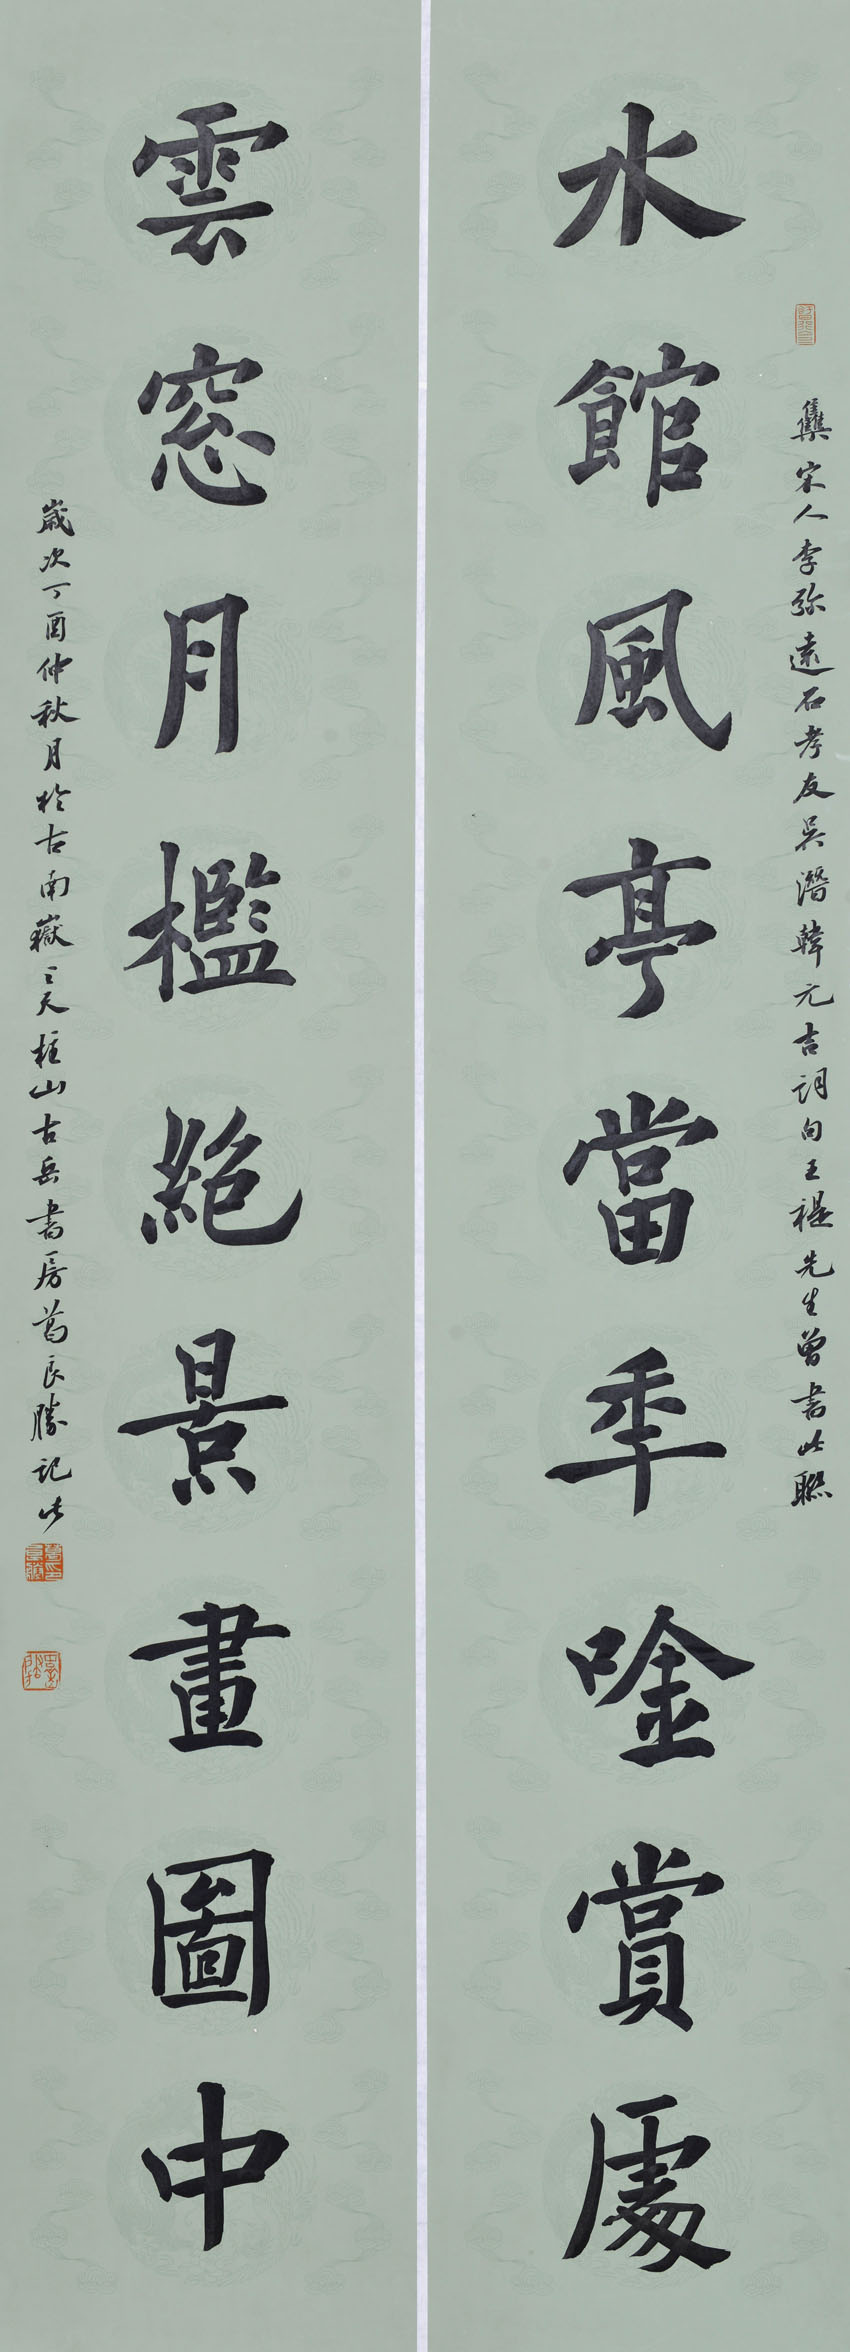 集宋人李弥遠石孝友吴潛韓元吉詞句王禔先生曾書此聯
水館風亭當年唫賞處
雲窓月檻絕景畫圖中
歲次丁酉仲秋月於古南嶽之天柱山古岳書房葛良勝記此